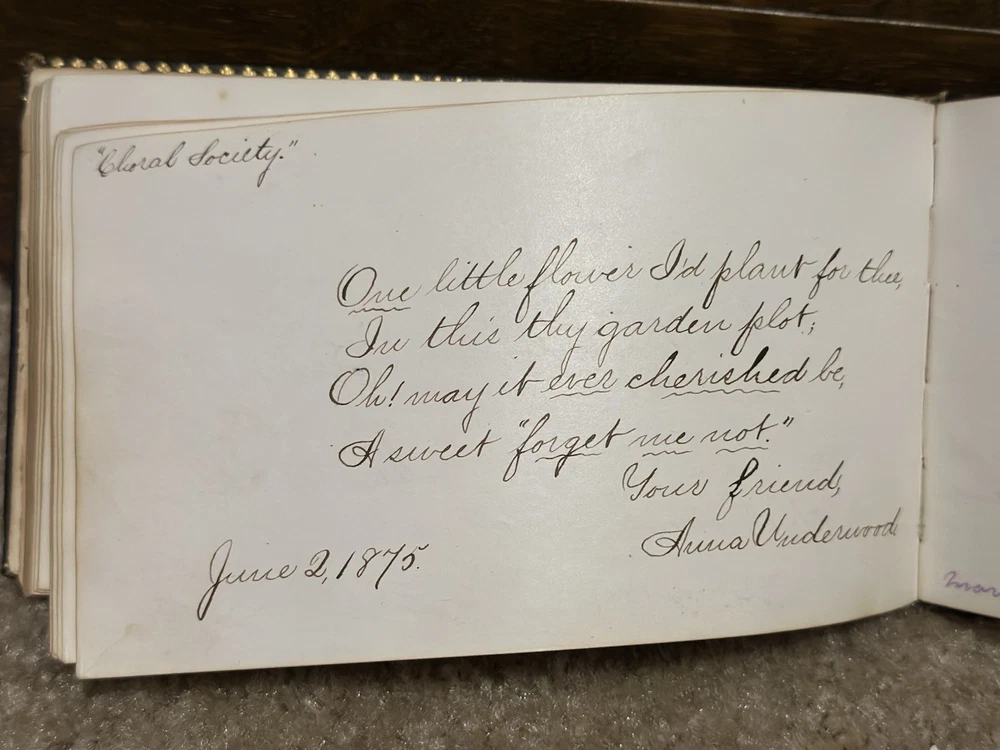 "Choral Society."
One little flower I'd plant for thee,
In this thy garden plot;
Oh! may it ever cherished be,
A sweet "forget me not."
Your friend,
Anna Underwood
June 2, 1875.